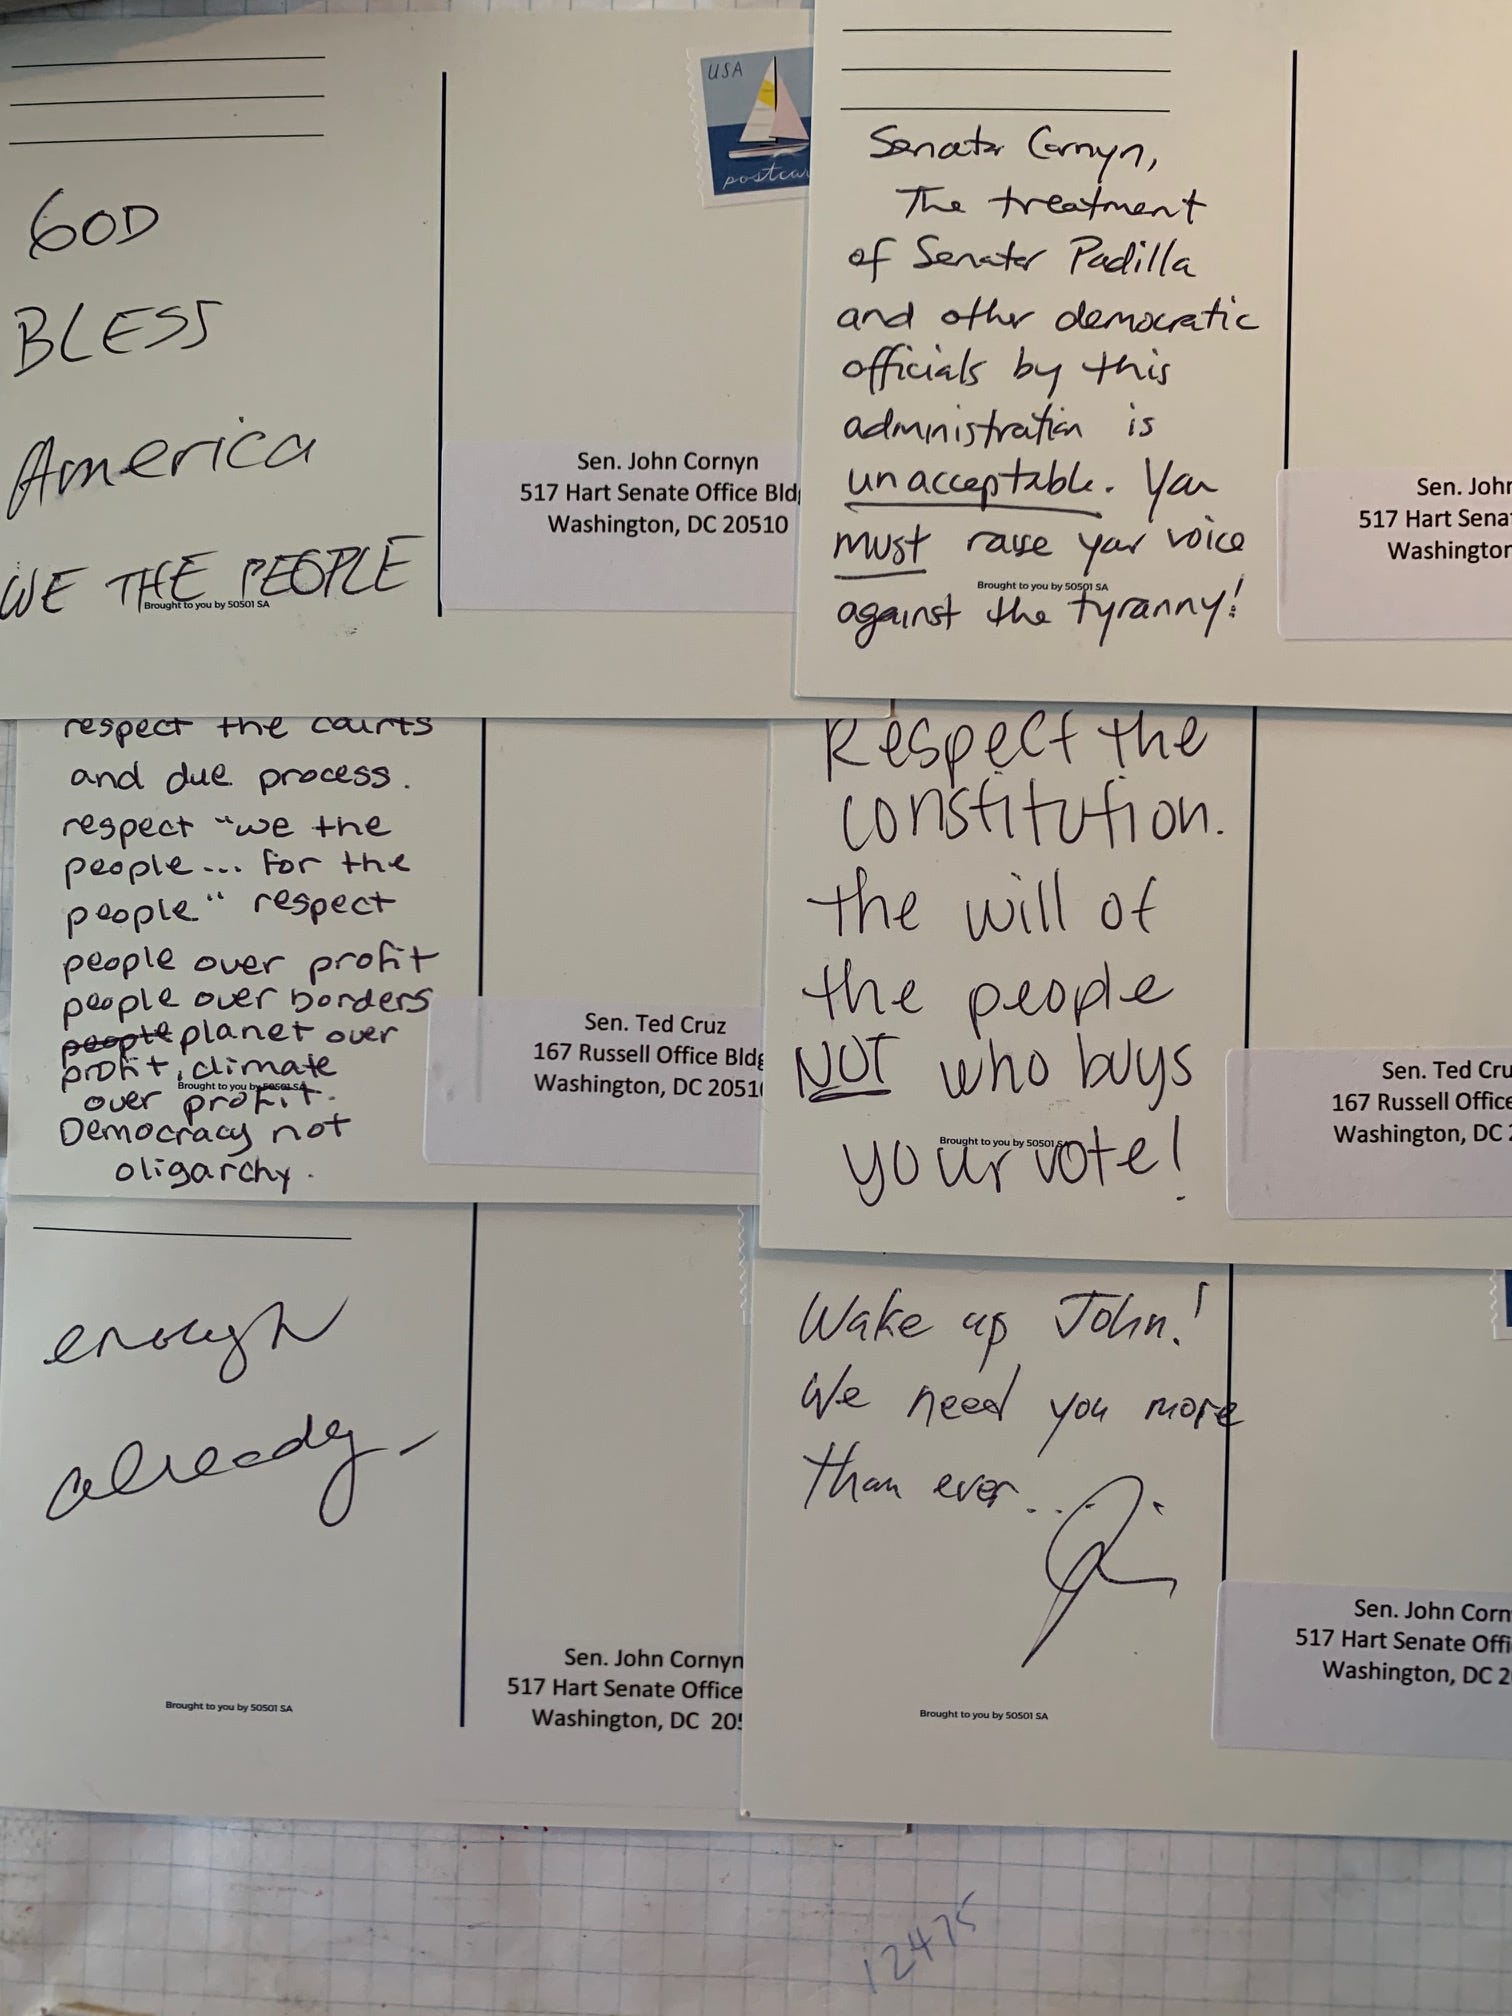 USA
postcar
GOD
BLESS
America
WE THE PEOPLE
Brought to you by 50501 SA
Sen. John Cornyn
517 Hart Senate Office Bldg
Washington, DC 20510
Senator Cornyn,
The treatment
of Senator Padilla
and other democratic
officials by this
administration is
unacceptable. You
must raise your voice
Brought to you by 50501 SA
against the tyranny!
Sen. John
517 Hart Sena
Washington
respect the courts
and due process.
respect "we the
people... for the
people" respect
people over profit
people over borders
people planet over
profit, climate
Brought to you by 50501 SA
over profit.
Democracy not
oligarchy.
Sen. Ted Cruz
167 Russell Office Bldg
Washington, DC 20510
Respect the
constitution.
the will of
the people
NOT who buys
Brought to you by 50501 SA
your vote!
Sen. Ted Cru
167 Russell Office
Washington, DC 2
enough
already
Brought to you by 50501 SA
Sen. John Cornyn
517 Hart Senate Office
Washington, DC 205
Wake up John!
We need you more
than ever...
Brought to you by 50501 SA
Sen. John Corn
517 Hart Senate Offi
Washington, DC 2
12475